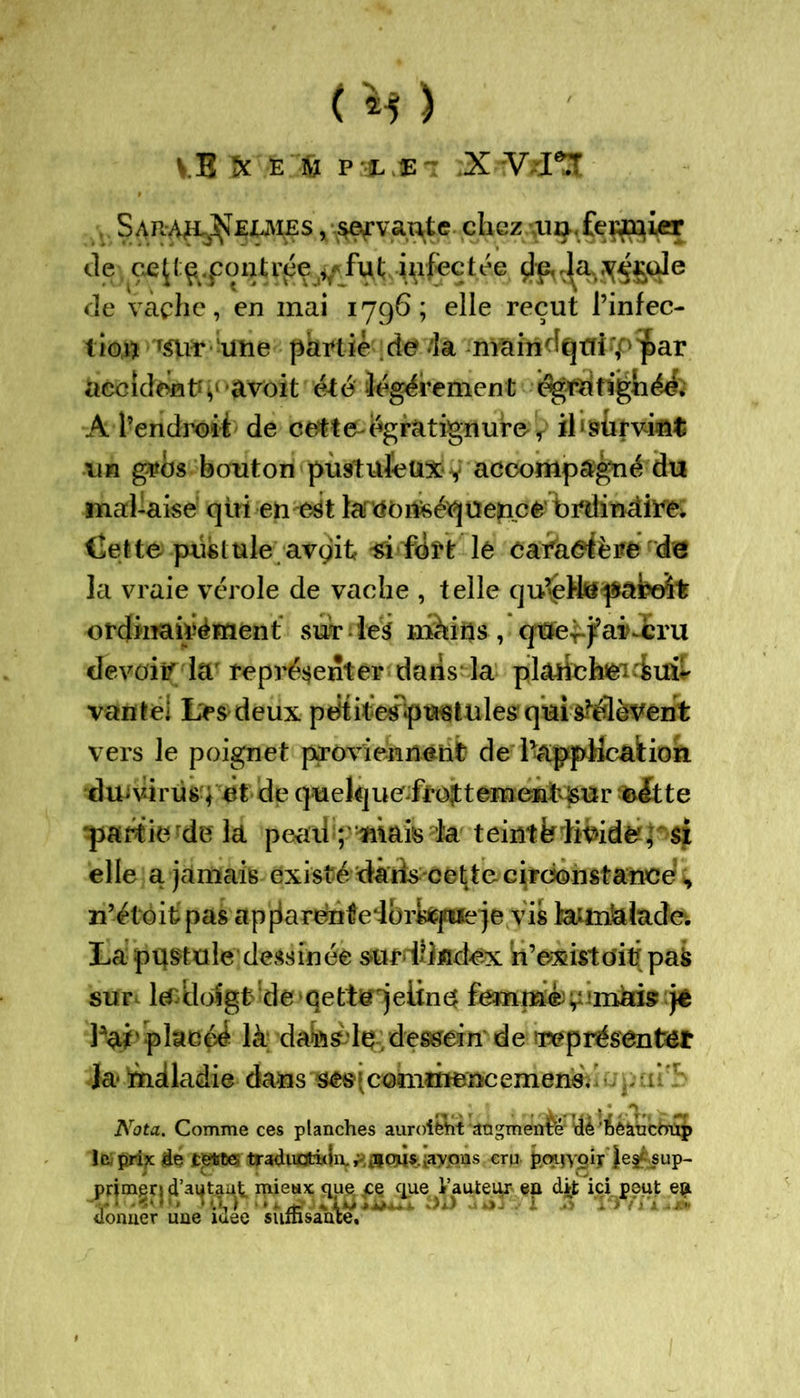 ( 25 )
EXEMPLE XVI.
SARAH NELMES, servante chez un fermier
de cette contrée, fut infectée de la vérole
de vache, en mai 1796 ; elle reçut l'infec-
tion sur une partie de la main qui, par
accident, avoit été légérement égratignée.
A l'endroit de cette égratignure, il survint
un gros bouton pustuleux, accompagné du
mal-aise qui en est la conséquence ordinaire.
Cette pustule avoit si fort le caractère de
la vraie vérole de vache , telle qu'elle paroît
ordinairément sur les mains, que j'ai cru
devoir la représenter dans la planche sui-
vante. Les deux petites pustules qui s'élèvent
vers le poignet proviennent de l'application
du virus, et de quelque frottement sur cette
partie de la peau ; mais la teinte livide, si
elle a jamais existé dans cette circonstance,
n'étoit pas apparente lorsque je vis la malade.
La pustule dessinée sur l'index n'existoit pas
sur le doigt de cette jeune femme, mais je
l'ai placée là dans le dessein de représenter
la maladie dans ses commencemens.
Nota. Comme ces planches auroient augmenté de beaucoup
le prix de cette traduction, nous avons cru pouvoir les sup-
primer, d'autant mieux que ce que l'auteur en dit ici peut en
donner une idée suffisante.